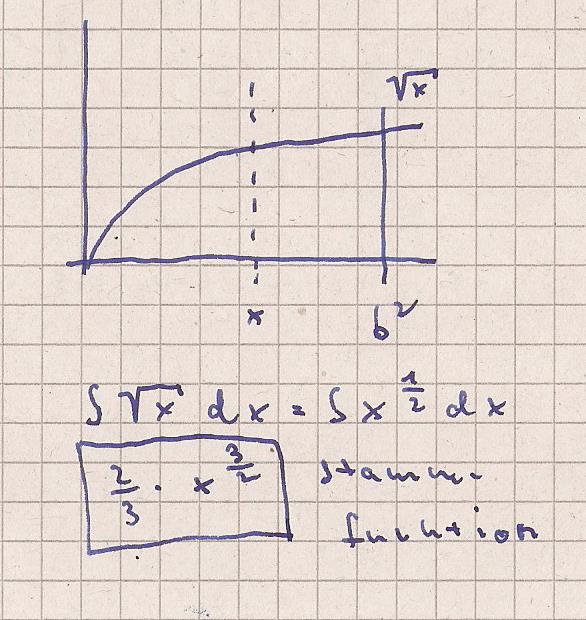 √x
x b²
∫ √x dx = ∫ x^(1/2) dx
2/3 · x^(3/2) Stamm-
funktion